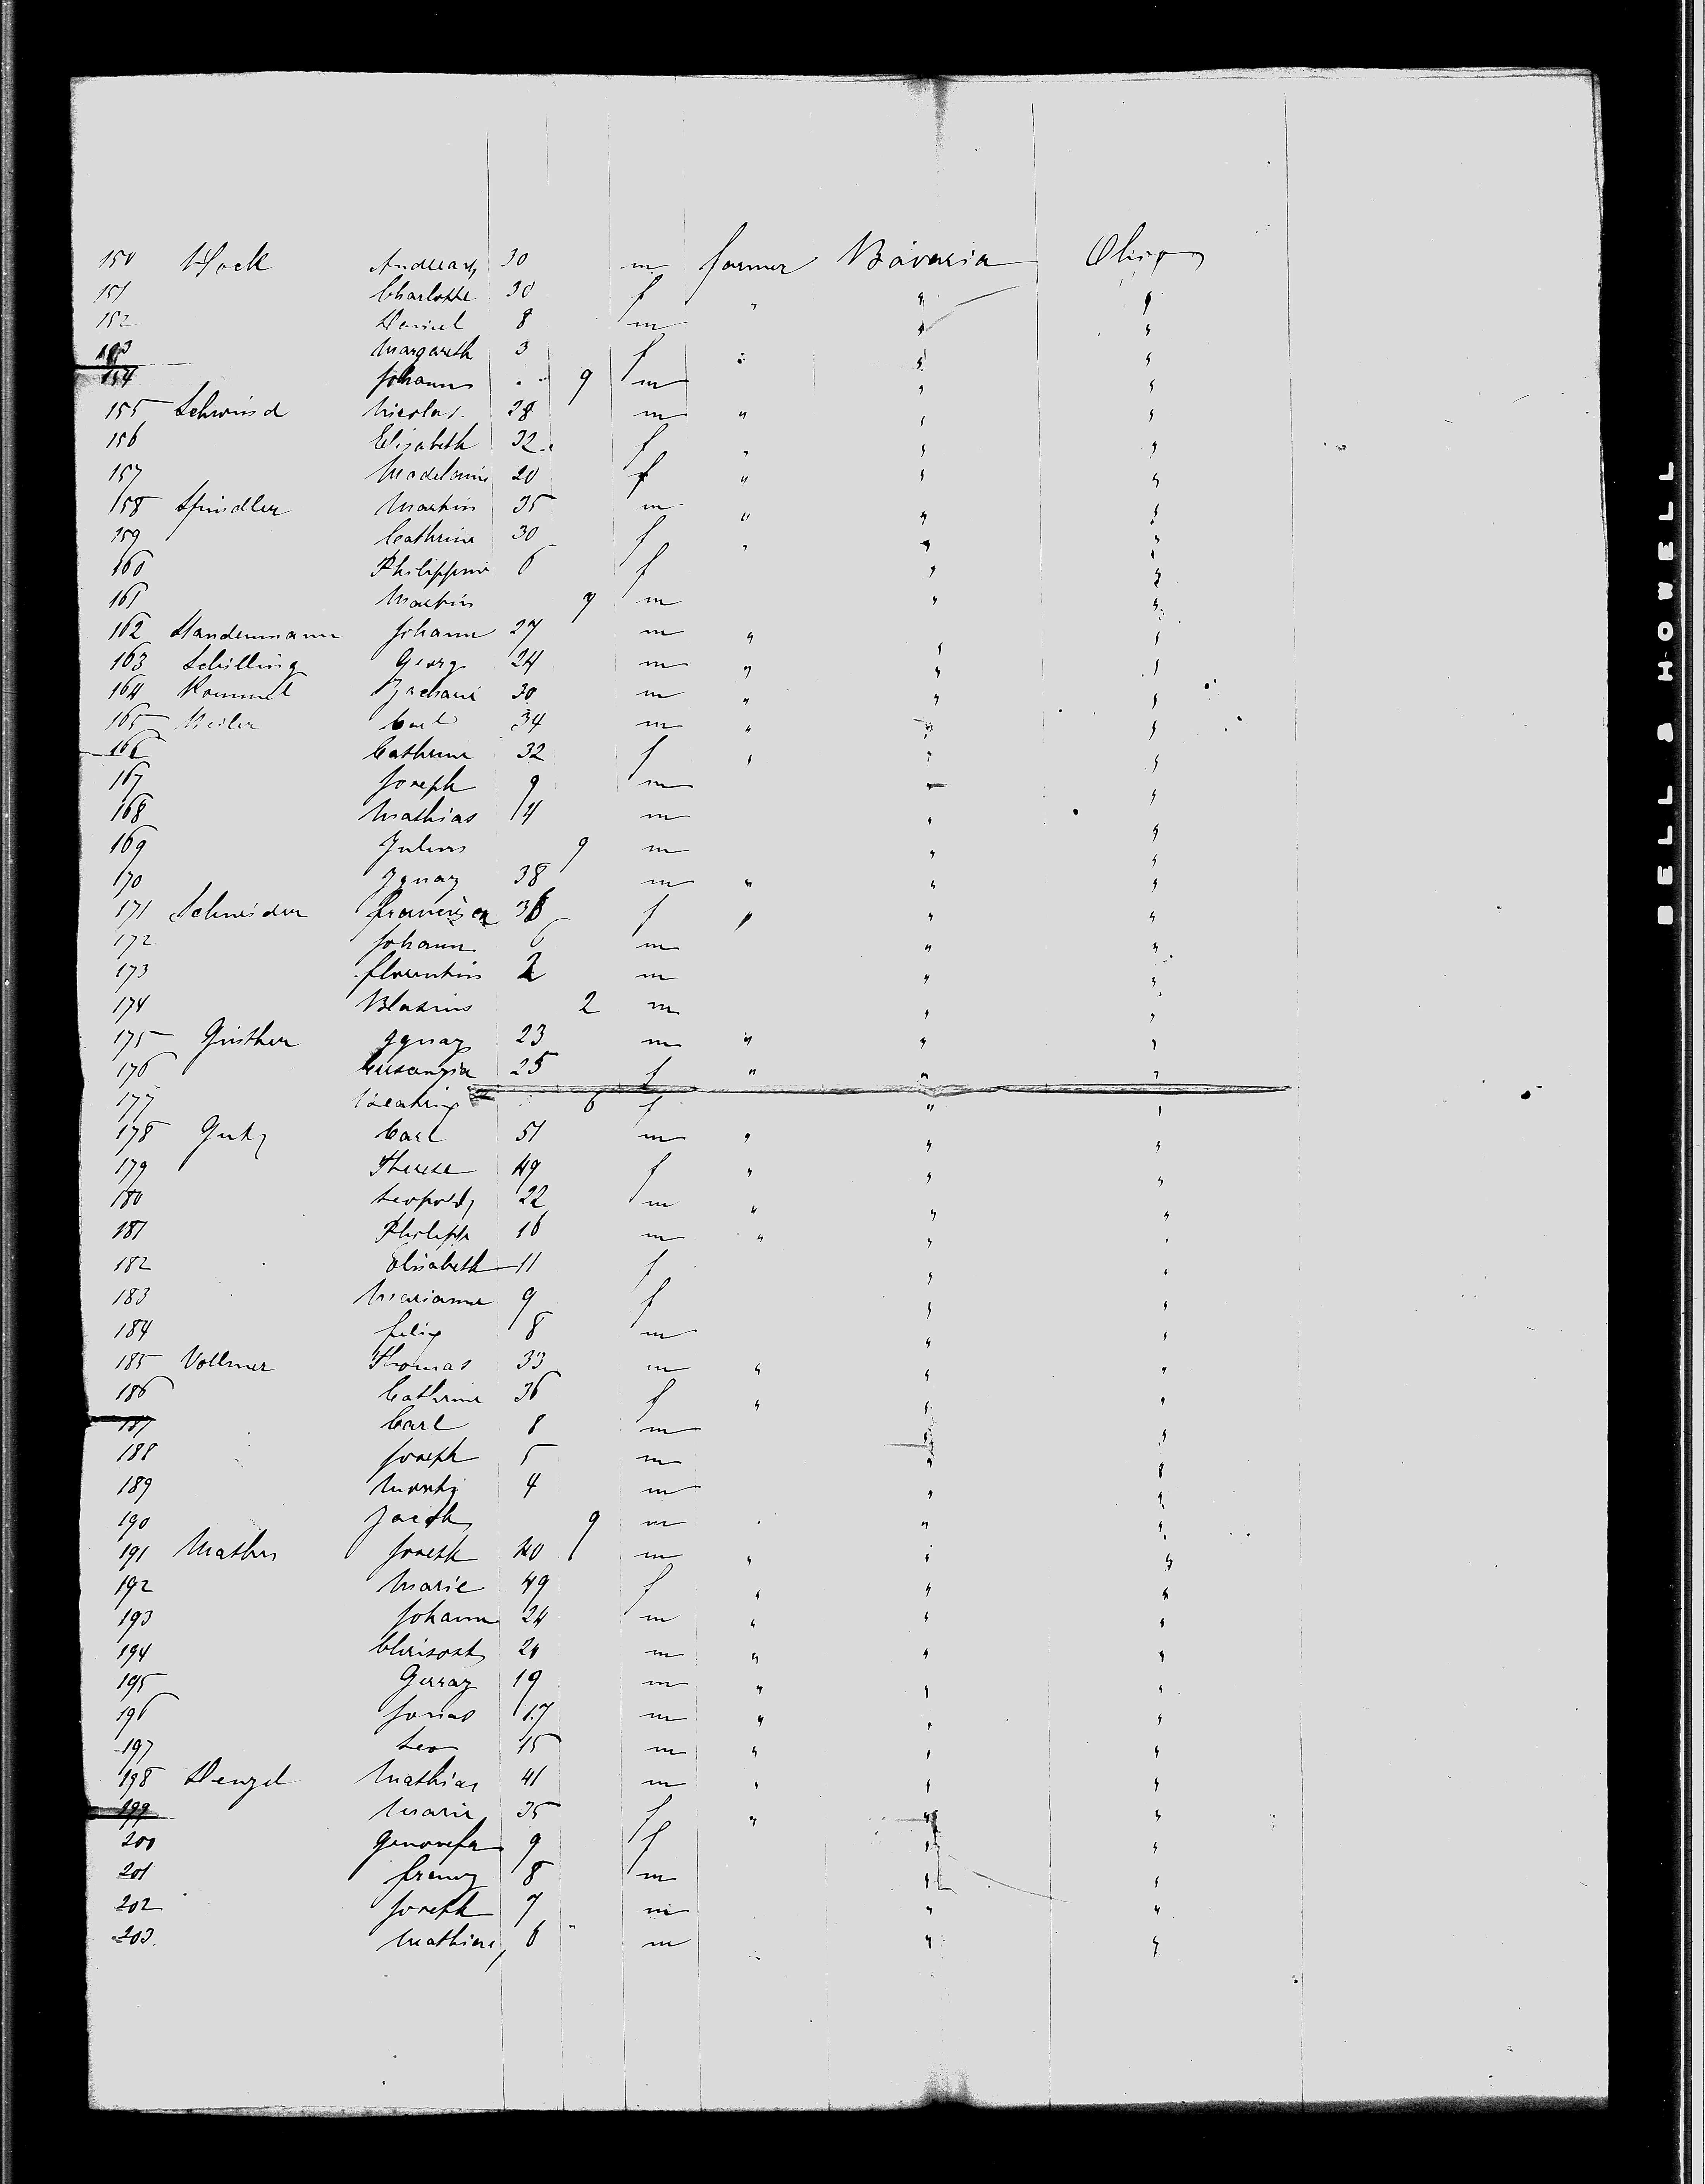 150 Hock Andreas 30 m farmer Bavaria Ohio
151 Charlotte 30 f " " "
152 Daniel 8 m " "
153 Margareth 3 f " " "
154 Johann 9 m " "
155 Schwind Nicolas 28 m " " "
156 Elisabeth 32 f " " "
157 20 f " " "
158 Spindler Martin 35 m " " "
159 Cathrine 30 f " " "
160 Philippine 6 f " "
161 Martin 7 m " "
162 Johann 27 m " " "
163 Schilling Georg 24 m " " "
164 30 m " " "
165 Carl 34 m " " "
166 Cathrine 32 f " " "
167 Joseph 9 m " "
168 Mathias 4 m " "
169 Julius 9 m " "
170 Ignaz 38 m " " "
171 Schneider Francisca f " " "
172 Johann 6 m " "
173 Florentin 2 m " "
174 Blasius 2 m " "
175 Ginther Ignaz 23 m " " "
176 25 f " " "
177 6 f " "
178 Carl 51 m " " "
179 Therese 49 f " " "
180 Leopold 22 m " " "
181 Philipp 16 m " " "
182 Elisabeth 11 f " "
183 Marianne 9 f " "
184 Felix 8 m " "
185 Vollmer Thomas 33 m " " "
186 Cathrine 36 f " " "
187 Carl 8 m " "
188 Joseph 5 m " "
189 Moritz 4 m " "
190 Jacob 9 m " "
191 Mathis Joseph 40 m " " "
192 Marie 49 f " " "
193 Johann 24 m " " "
194 Chrisost m " " "
195 19 m " " "
196 Jonas 17 m " " "
197 Leo 15 m " " "
198 Denzel Mathias 41 m " " "
199 Marie 35 f " " "
200 Genovefa 9 f " "
201 Franz 8 m " "
202 Joseph 7 m " "
203 Mathias 6 m " "
BELL & HOWELL